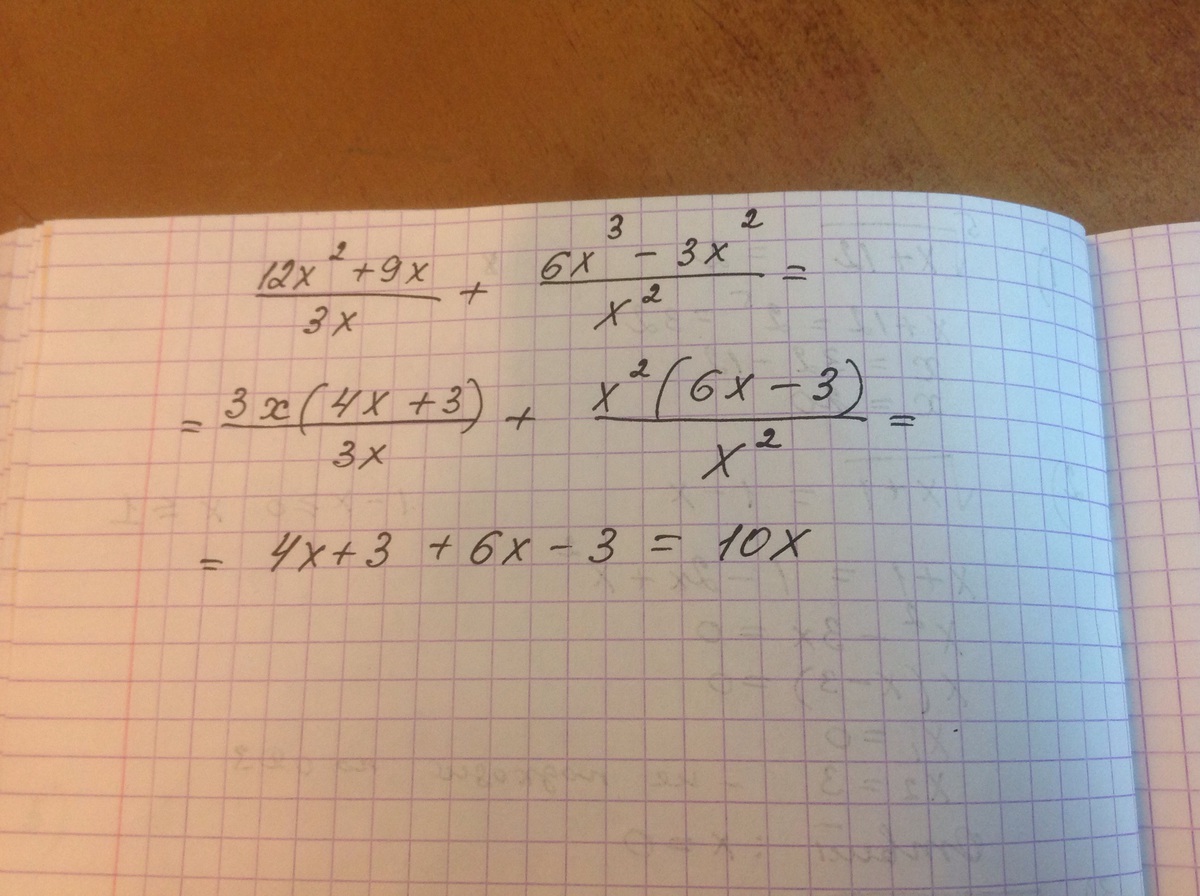 (12x² + 9x)/(3x) + (6x³ - 3x²)/(x²) =
= (3x(4x + 3))/(3x) + (x²(6x - 3))/(x²) =
= 4x + 3 + 6x - 3 = 10x